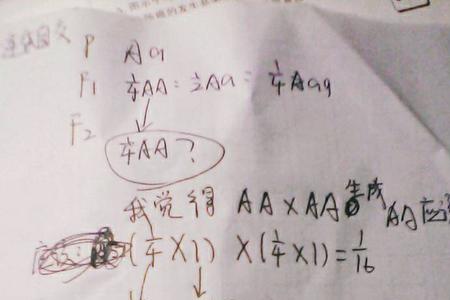 P Aa
F₁ ¼AA : ½Aa : ¼Aaa
F₂
¼AA ?
我觉得 AA×AA生成 AA应
(¼×1) × (¼×1) = 1/16